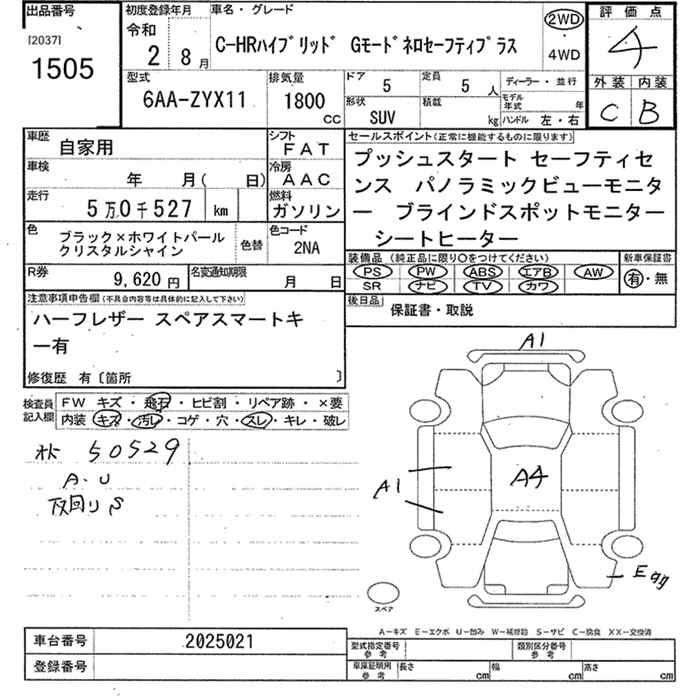 出品番号
[2037]
1505
初度登録年月
令和
2 8月
車名・グレード
C-HRハイブリッド Gモードネロセーフティプラス
2WD
4WD
評価点
4
型式
6AA-ZYX11
排気量
1800
cc
ドア
5
定員
5 人
形状
SUV
積載
kg
ディーラー・並行
モデル年式 年
ハンドル 左・右
外装 内装
C B
車歴
自家用
シフト
FAT
車検
年 月( 日)
冷房
AAC
走行
5万0千527 km
燃料
ガソリン
色
ブラック×ホワイトパール
クリスタルシャイン
色替
色コード
2NA
R券
9,620円
名変通知期限
月 日
セールスポイント(正常に機能するものに限ります)
プッシュスタート セーフティセ
ンス パノラミックビューモニタ
ー ブラインドスポットモニター
シートヒーター
装備品 (純正品に限り○をつけてください)
PS PW ABS エアB AW
SR ナビ TV カワ
新車保証書
有・無
後日品
保証書・取説
注意事項申告欄(不具合内容等は具体的に記入して下さい)
ハーフレザー スペアスマートキ
ー有
修復歴 有〔箇所 〕
検査員
記入欄
FW キズ・飛石・ヒビ割・リペア跡・×要
内装 キズ・汚れ・コゲ・穴・スレ・キレ・破レ
50529
A・U
下回りS
A1
A1
A4
スペア
A-キズ E-エクボ U-凹み W-補修跡 S-サビ C-腐食 XX-交換済
車台番号
2025021
登録番号
型式指定番号
参考
類別区分番号
参考
車庫証明用
参考
長さ cm
幅 cm
高さ cm